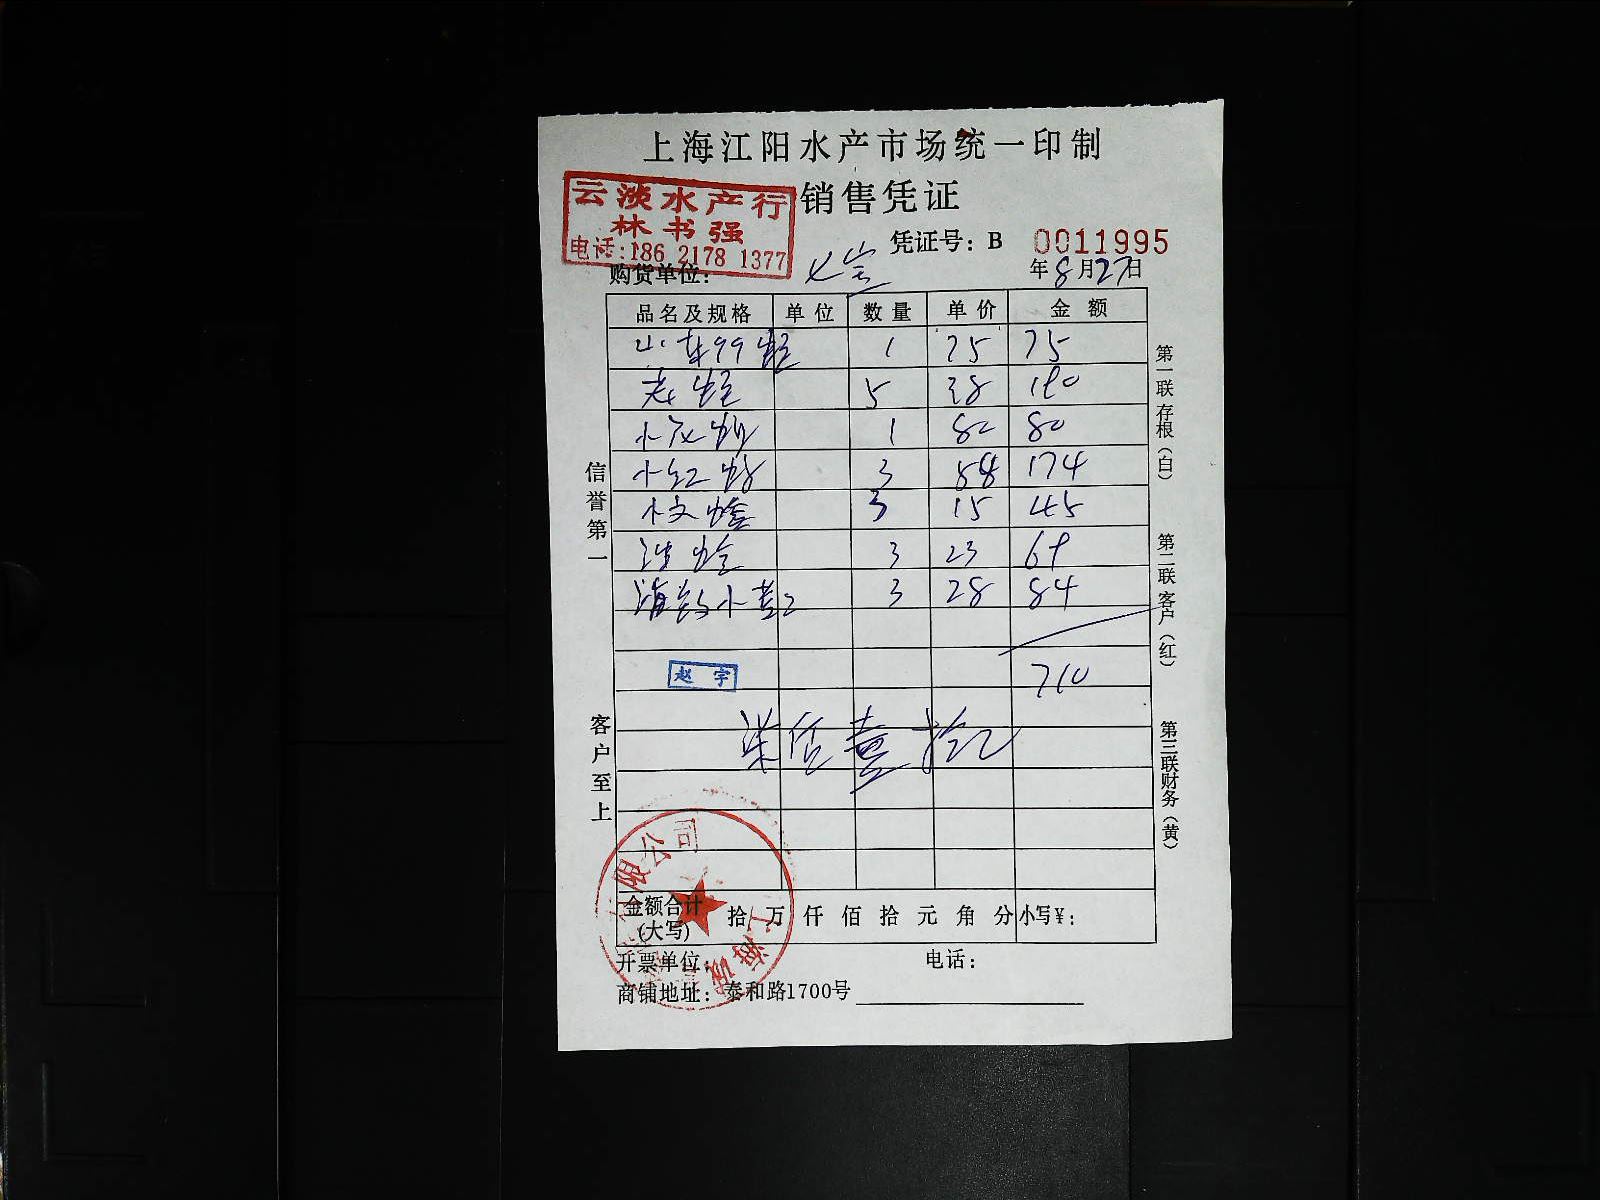 上海江阳水产市场统一印制
销售凭证
云淡水产行
林书强
电话:186 2178 1377
凭证号: B 0011995
购货单位:
年8月27日
品名及规格 单位 数量 单价 金额
1 75 75
5 38 190
1 80 80
小红 3 58 174
小文蛤 3 15 45
3 23 69
3 28 84
710
赵宇
柒佰壹拾元
信誉第一
客户至上
第一联存根(白)
第二联客户(红)
第三联财务(黄)
金额合计(大写) 拾万仟佰拾元角分 小写¥:
开票单位: 电话:
商铺地址: 泰和路1700号
上海诚
限公司